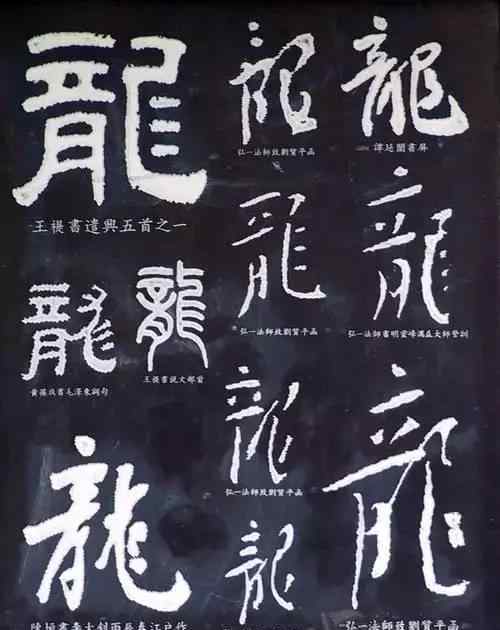 龍
王禔書遣興五首之一
龍
黃葆戉書毛澤東詞句
龍
王禔書說文部首
龍
龍
弘一法師致劉質平函
龍
弘一法師致劉質平函
龍
弘一法師致劉質平函
龍
龍
譚延闓書屏
龍
弘一法師書明靈峰蕅益大師警訓
龍
弘一法師致劉質平函